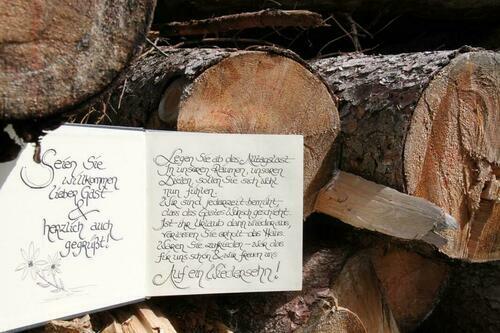 Seien Sie
willkommen
lieber Gast
&
herzlich auch
gegrüßt!
Legen Sie ab des Alltagslast
In unseren Räumen, unseren
Decken, sollen Sie sich wohl
nun fühlen.
Wir sind jederzeit bemüht,
dass des Gastes Wunsch geschieht.
Ist ihr Urlaub dann wieder aus,
verlassen Sie erholt das Haus.
Waren Sie zufrieden - war das
für uns schön & wir freuen uns
Auf ein Wiedersehn!